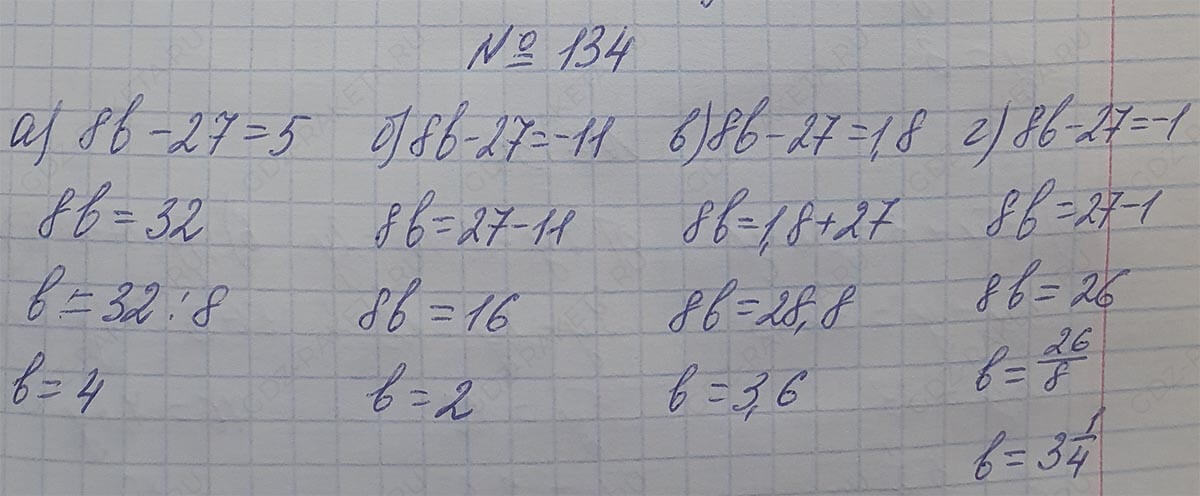 № 134
а) 8b - 27 = 5
8b = 32
b = 32 : 8
b = 4
б) 8b - 27 = -11
8b = 27 - 11
8b = 16
b = 2
в) 8b - 27 = 1,8
8b = 1,8 + 27
8b = 28,8
b = 3,6
г) 8b - 27 = -1
8b = 27 - 1
8b = 26
b = 26/8
b = 3 1/4